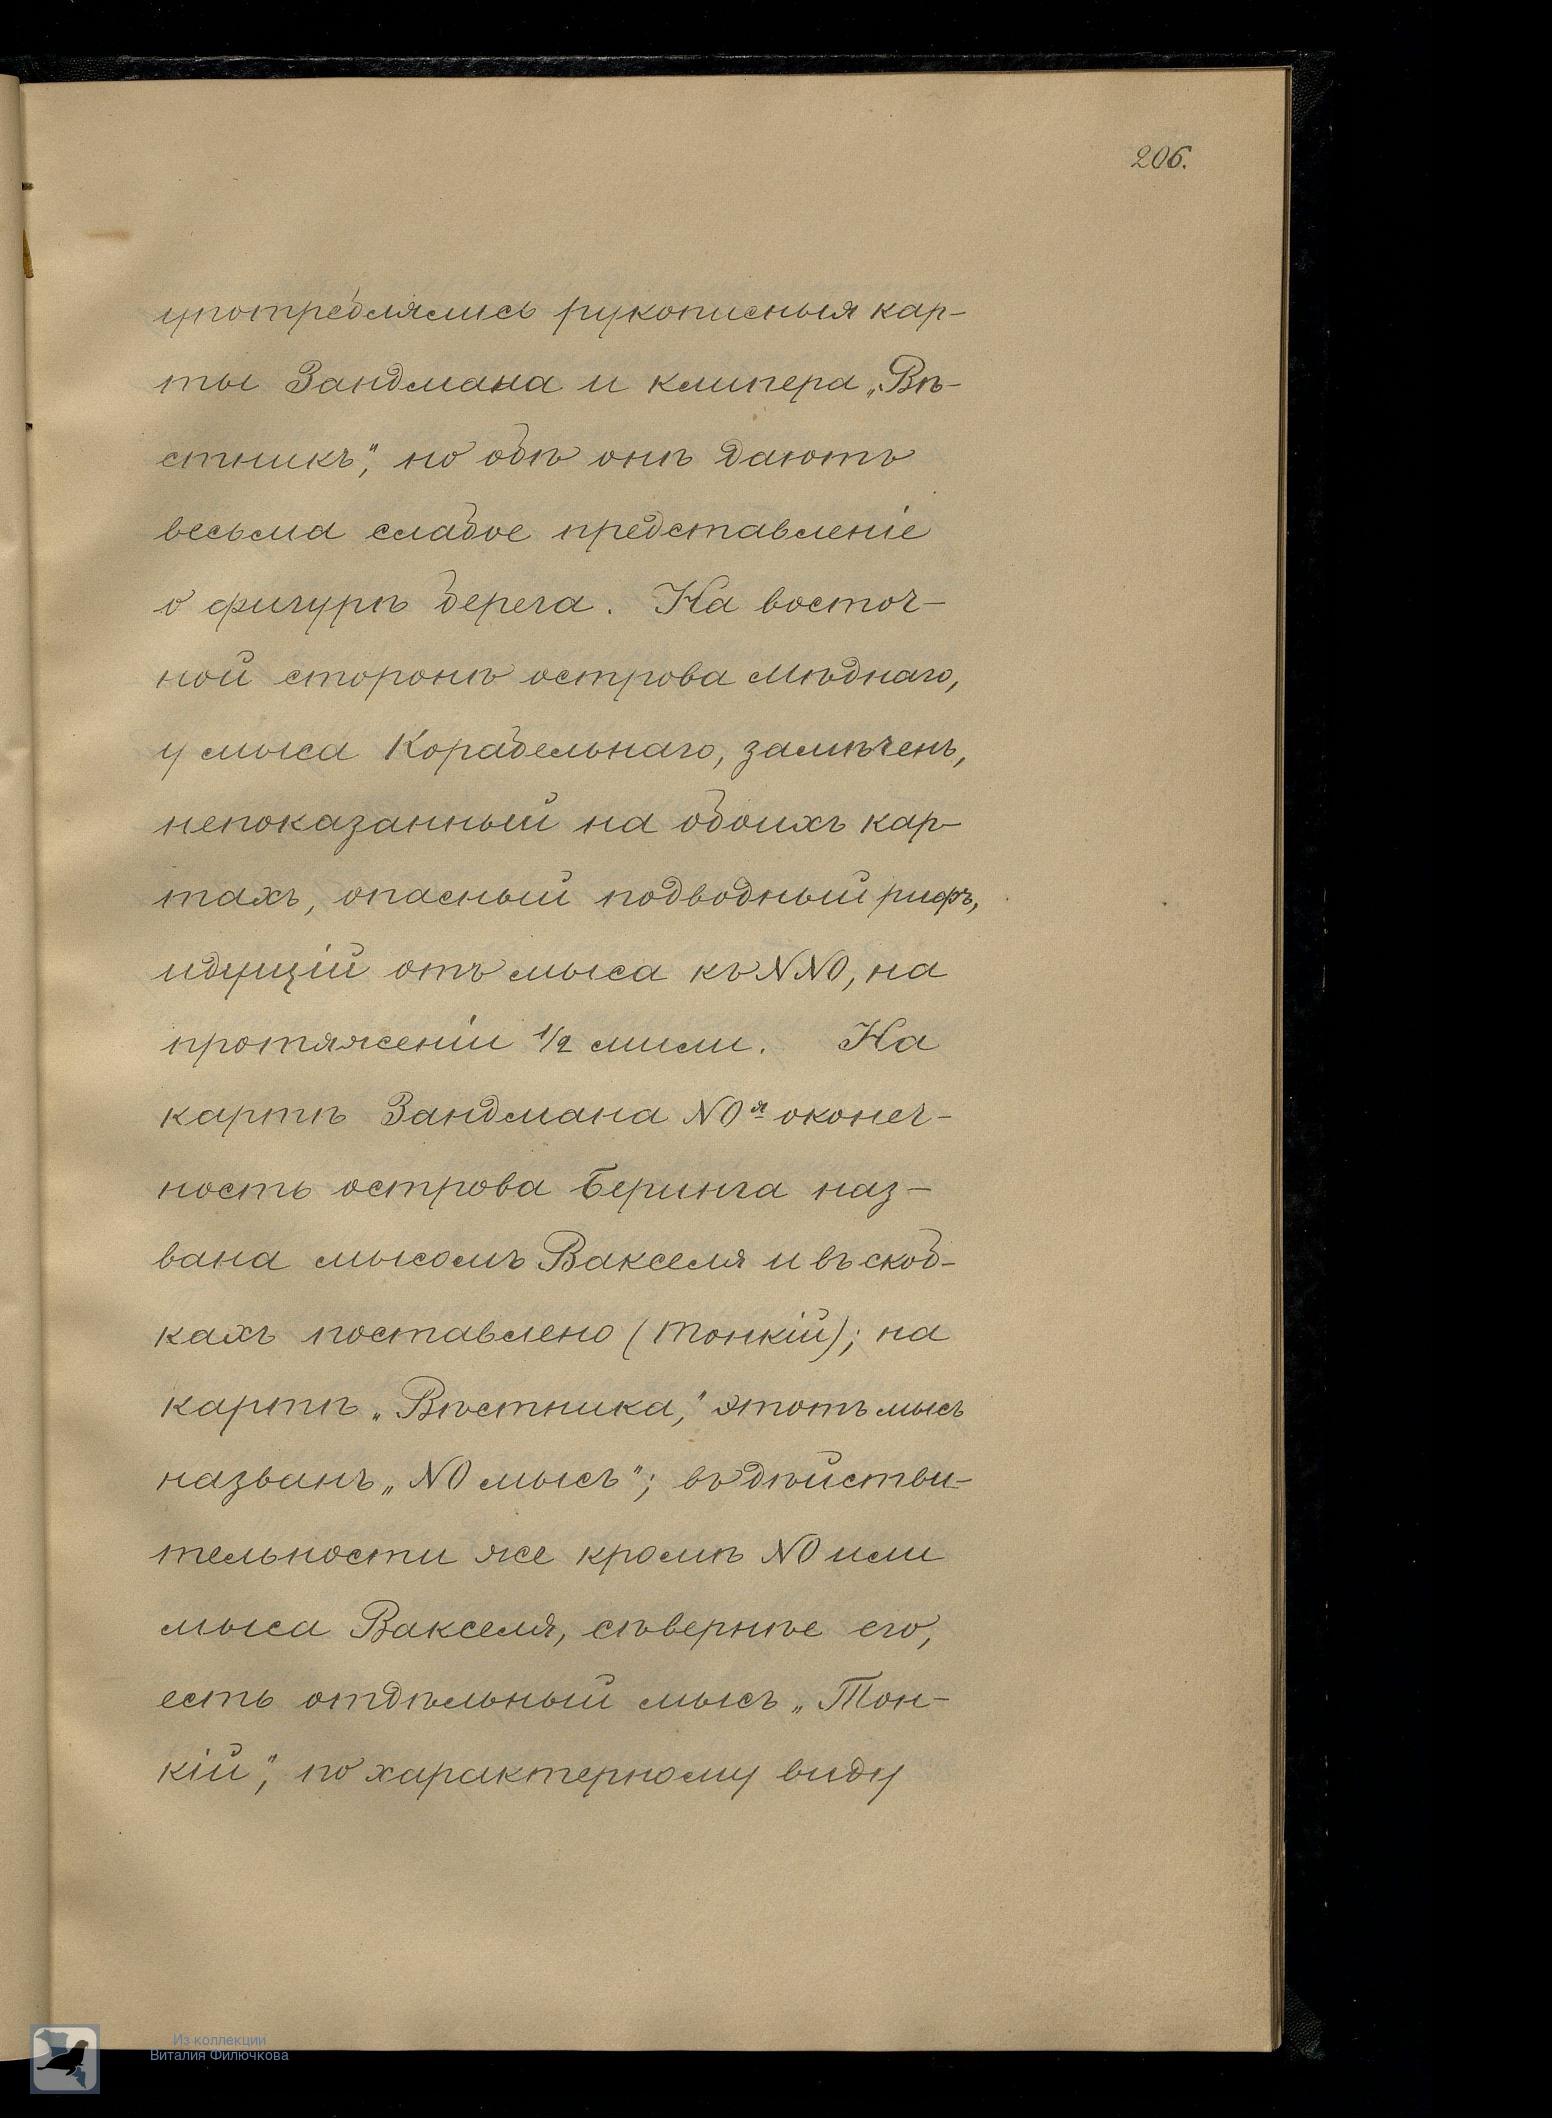 206.
употреблялись рукописныя кар-
ты Зандмана и клипера „Вѣ-
стникъ“, но обѣ онѣ даютъ
весьма слабое представленіе
о фигурѣ берега. На восточ-
ной сторонѣ острова Мѣднаго,
у мыса Корабельнаго, замѣченъ,
непоказанный на обоихъ кар-
тахъ, опасный подводный рифъ,
идущій отъ мыса къ NNO, на
протяженіи 1/2 мили. На
картѣ Зандмана NOя оконеч-
ность острова Беринга наз-
вана мысомъ Вакселя и въ скоб-
кахъ поставлено (Тонкій); на
картѣ „Вѣстника,“ этотъ мысъ
названъ „NO мысъ“; въ дѣйстви-
тельности же кромѣ NO или
мыса Вакселя, сѣвернѣе его,
есть отдѣльный мысъ „Тон-
кій“, по характерному виду
Из коллекции
Виталия Филючкова